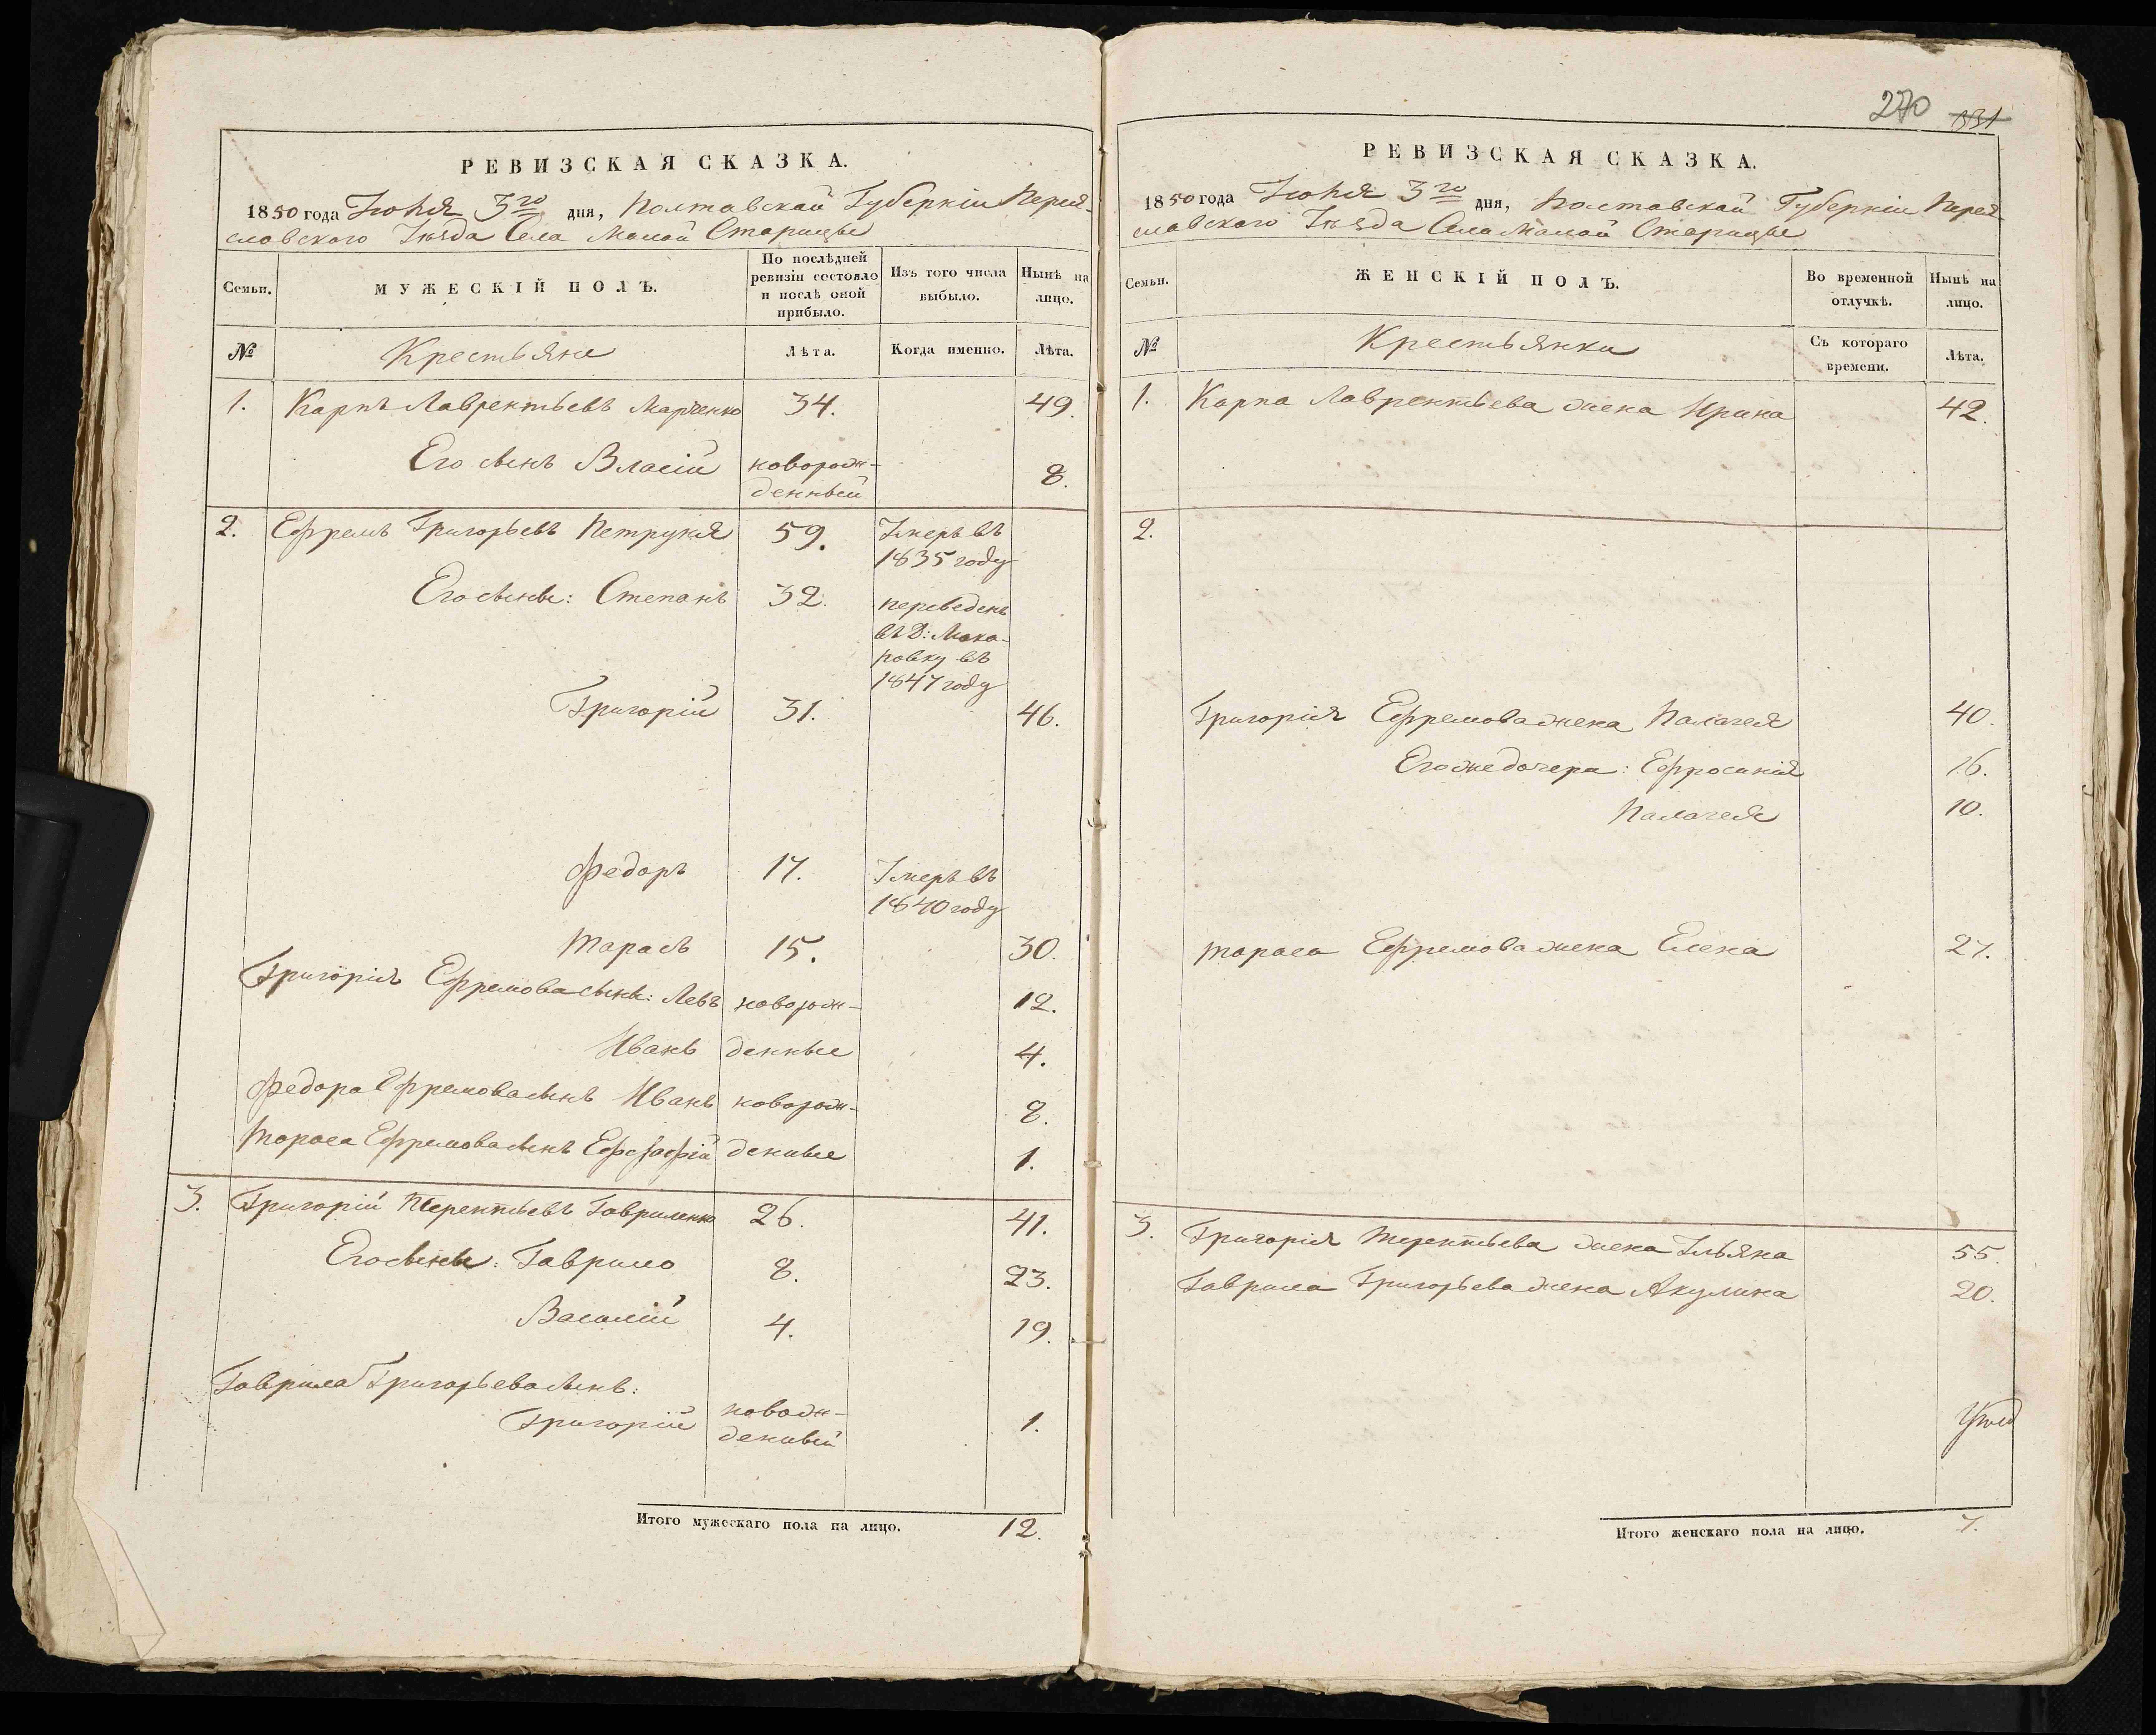 270 331
РЕВИЗСКАЯ СКАЗКА.
1850 года Іюня 3го дня, Полтавской Губерніи Перея-
словского Уѣзда Села Малой Старицы
Семьи.
МУЖЕСКІЙ ПОЛЪ.
По послѣдней ревизіи состояло и послѣ оной прибыло.
Изъ того числа выбыло.
Нынѣ на лицо.
№ Крестьяне Лѣта. Когда именно. Лѣта.
1. Карпъ Лаврентьевъ Марченко 34. 49.
Его сынъ Власій новорож-
денный 8.
2. Ефремъ Григорьевъ Петруня 59. Умеръ въ
1835 году
Его сыны: Степанъ 32. переведенъ
въ Д: Мака-
ровку въ
1847 году
Григорій 31. 46.
Федоръ 17. Умеръ въ
1840 году
Тарасъ 15. 30.
Григорія Ефремова сыны: Левъ новорож- 12.
Иванъ денные 4.
Федора Ефремова сынъ Иванъ новорож- 8.
Тараса Ефремова сынъ денные 1.
3. Григорій Терентьевъ Гавриленко 26. 41.
Его сыны: Гаврило 8. 23.
Василій 4. 19.
Гаврила Григорьева сынъ:
Григорій новож-
денный 1.
Итого мужескаго пола на лицо. 12.
РЕВИЗСКАЯ СКАЗКА.
1850 года Іюня 3го дня, Полтавской Губерніи Перея-
словского Уѣзда Села Малой Старицы
Семьи.
ЖЕНСКІЙ ПОЛЪ.
Во временной отлучкѣ.
Нынѣ на лицо.
№ Крестьянки Съ котораго времени. Лѣта.
1. Карпа Лаврентьева жена Ирина 42.
2.
Григорія Ефремова жена Палагея 40.
Его же дочери: Ефросинія 16.
Палагея 10.
Тараса Ефремова жена Елена 27.
3. Григорія Терентьева жена Ульяна 55.
Гаврила Григорьева жена Акулина 20.
Итого женскаго пола на лицо. 7.